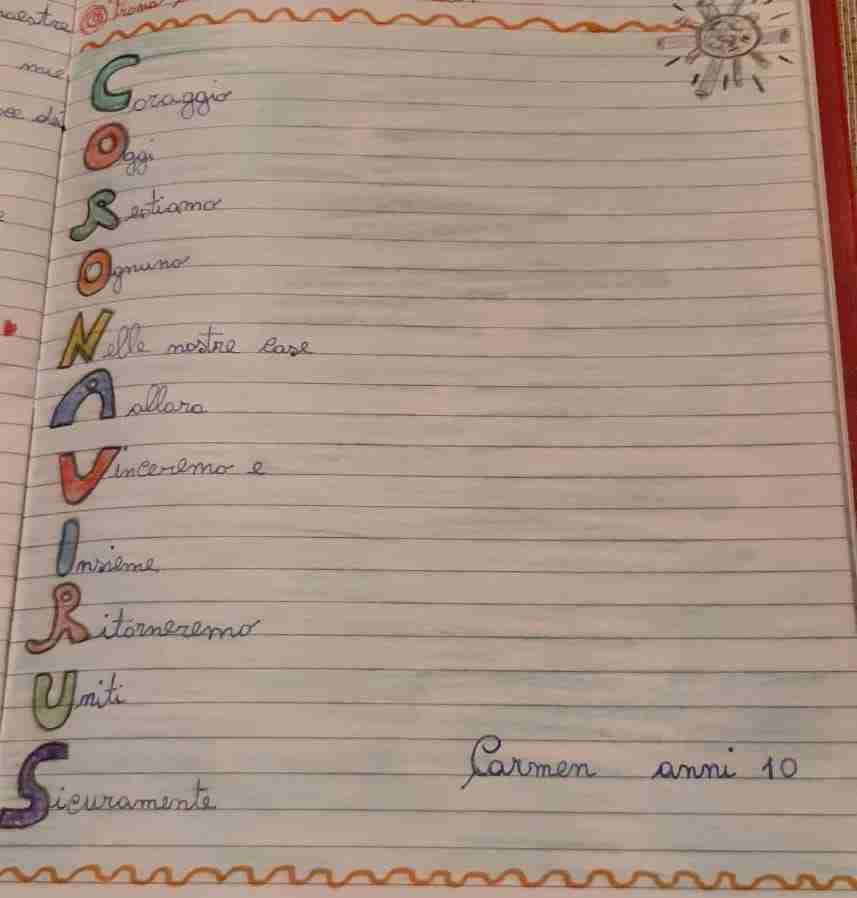 maestre
Coraggio
Oggi
Restiamo
Ognuno
Nelle nostre case
A allora
Vinceremo e
Insieme
Ritorneremo
Uniti
Sicuramente
Carmen anni 10